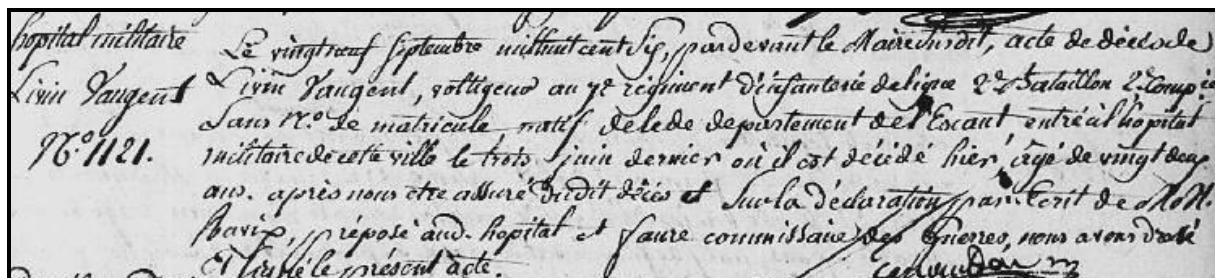 hopital militaire
Livin Vaugent
N.º 1121.
Le vingt neuf Septembre mil huit cent Six, pardevant le Maire Susdit, acte de décès de
Livin Vaugent, voltigeur au 7.e régiment d'infanterie de ligne 2.e Bataillon 2.e Comp.ie
Sans N.º de matricule, natif de lede departement de l'Escaut, entré à l'hopital
militaire de cette ville le trois juin dernier où il est décédé hier, âgé de vingt deux
ans. après nous etre assuré dudit décès et Sur la déclaration par Ecrit de MM.
préposé aud. hopital et faure commissaire des Guerres, nous avons
et Signé le présent acte.